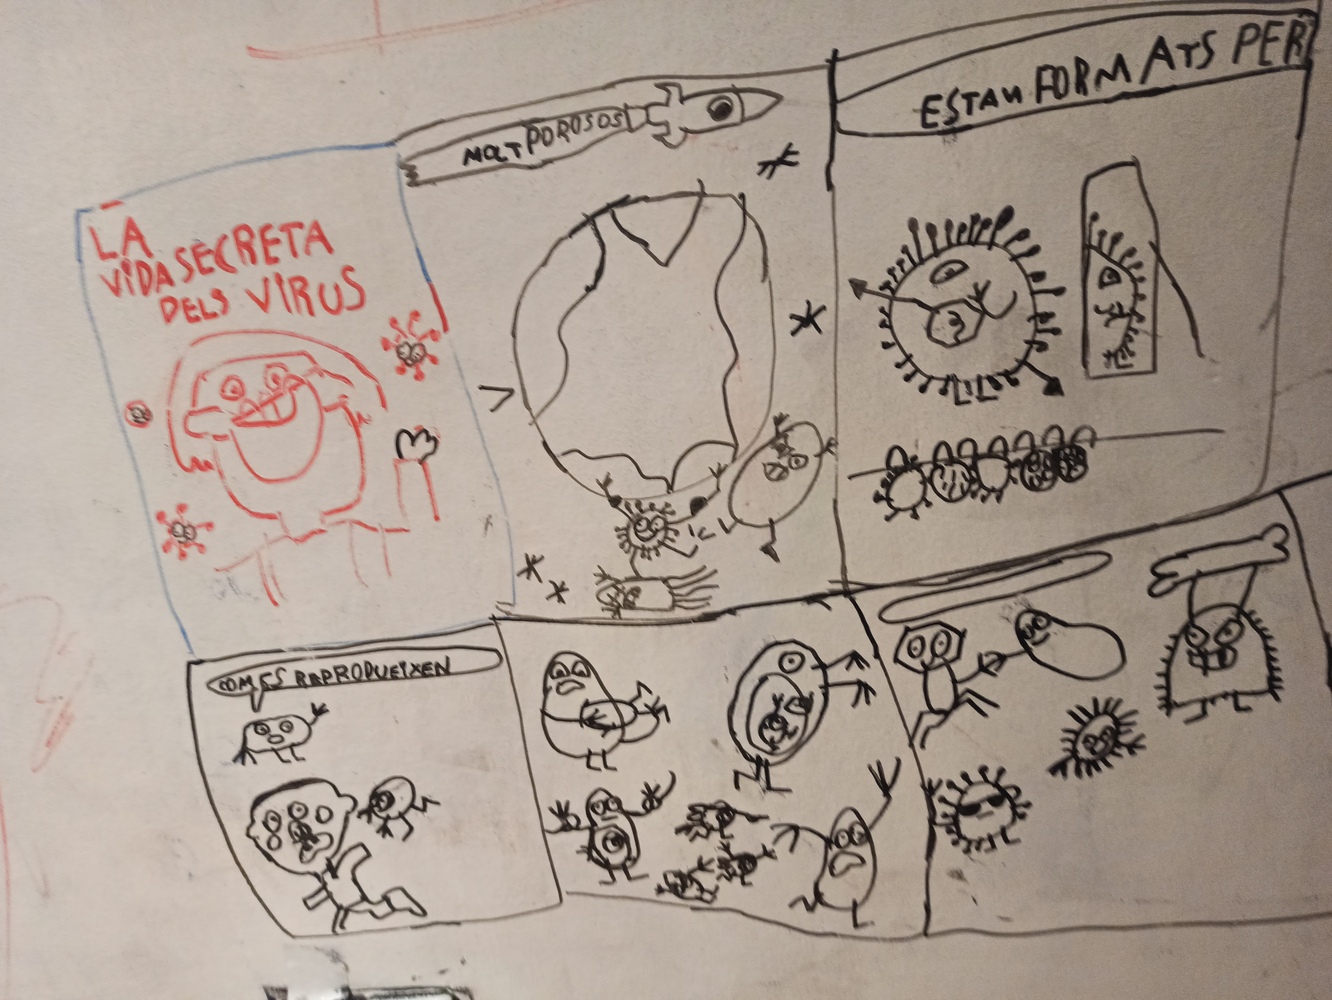 LA
VIDA SECRETA
DELS VIRUS
MOLT POROSOS
ESTAN FORMATS PER
COM ES REPRODUEIXEN